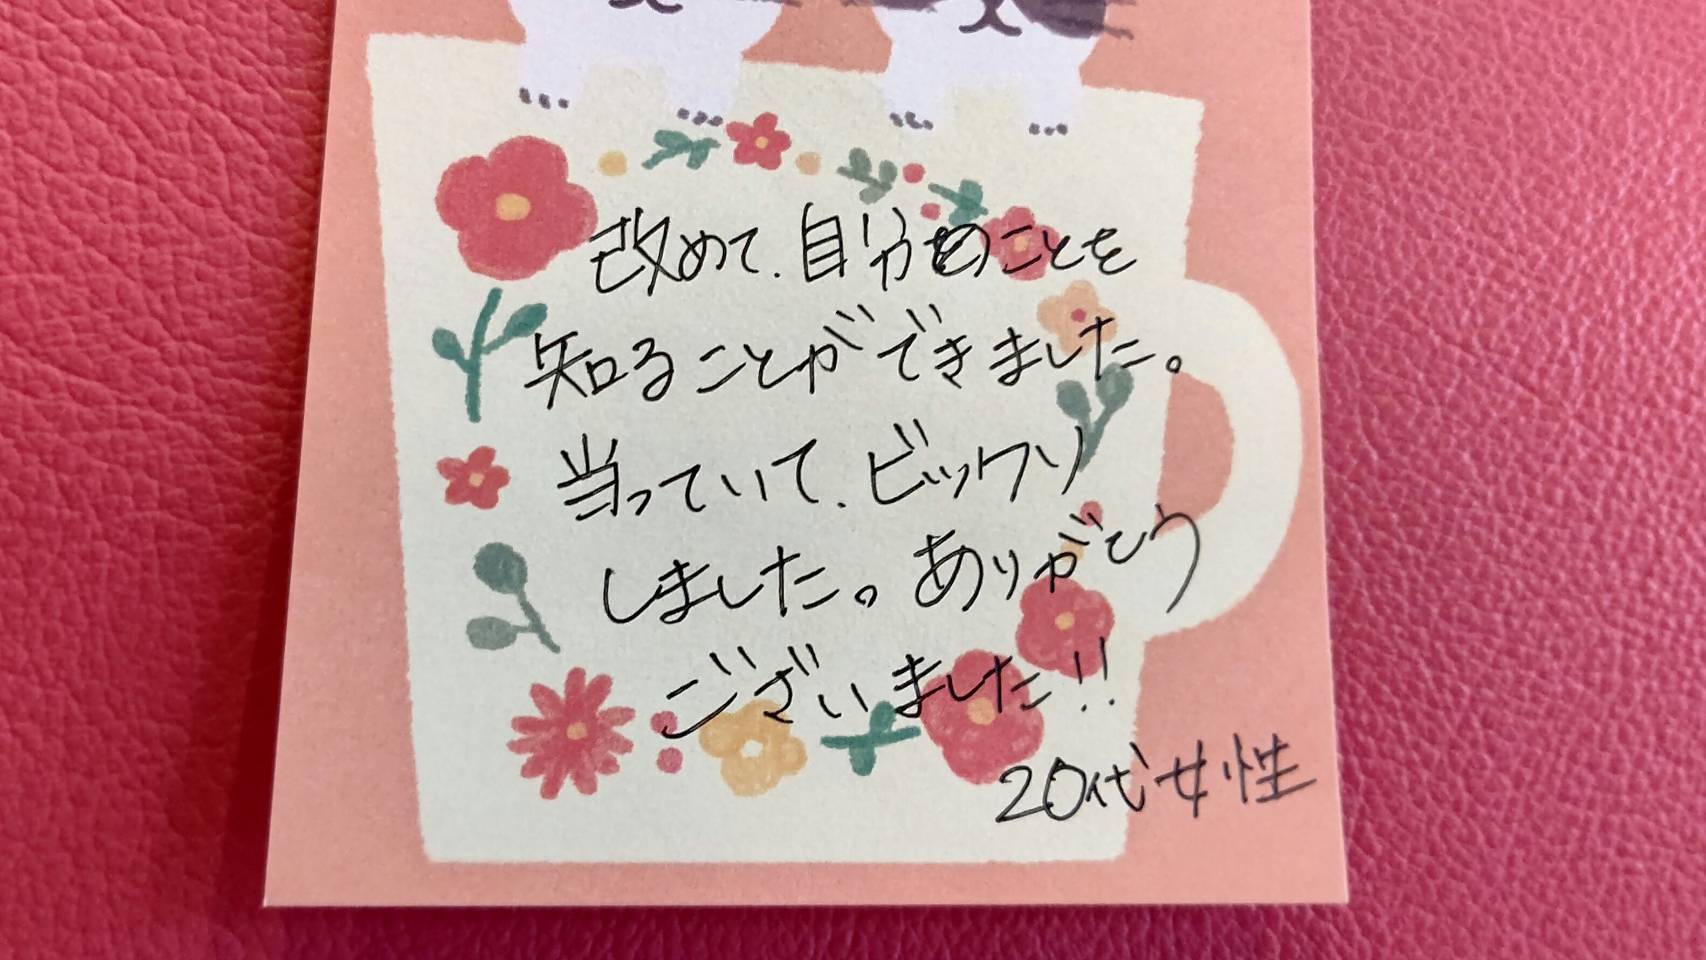 改めて、自分のことを
知ることができました。
当っていて、ビックリ
しました。ありがとう
ございました!!
20代女性